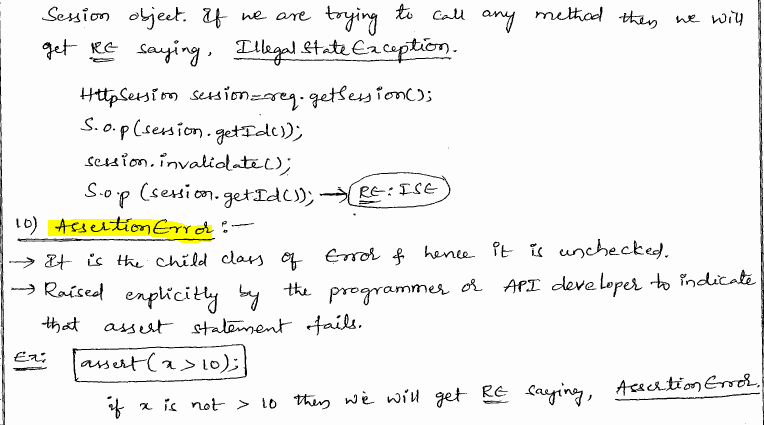 Session object. If we are trying to call any method then we will
get RE saying, IllegalStateException.
HttpSession session=req.getSession();
S.o.p(session.getId());
session.invalidate();
S.o.p (session.getId()); → RE: ISE
10) AssertionError :—
→ It is the child class of Error & hence it is unchecked.
→ Raised explicitly by the programmer or API developer to indicate
that assert statement fails.
Ex: assert(x>10);
if x is not > 10 then we will get RE saying, AssertionError.